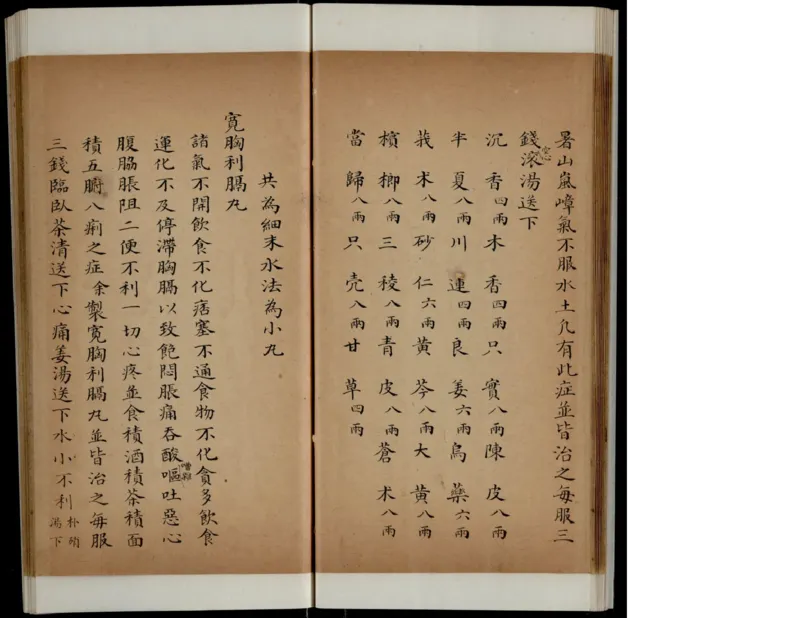 暑山嵐嶂氣不服水土凢有此症並皆治之每服三
錢滾湯送下
沉香四兩木香四兩只實八兩陳皮八兩
半夏八兩川連四兩良姜六兩烏藥六兩
莪术八兩砂仁六兩黄芩八兩大黄八兩
檳榔八兩三稜八兩青皮八兩蒼术八兩
當歸八兩只壳八兩甘草四兩
共為細末水法為小丸
寛胸利膈丸
諸氣不開飲食不化痞塞不通食物不化貪多飲食
運化不及停滯胸膈以致飽悶脹痛吞酸嘈雜嘔吐惡心
腹脇脹阻二便不利一切心疼並食積酒積茶積面
積五臌八痢之症余製寛胸利膈丸並皆治之每服
三錢臨臥茶清送下心痛姜湯送下水小不利朴硝湯下